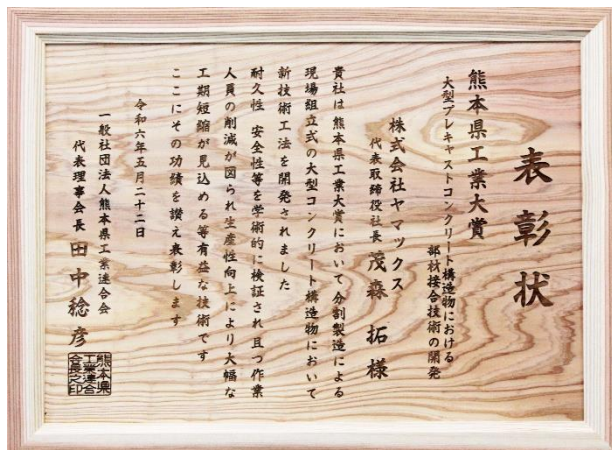 表彰状
熊本県工業大賞
大型プレキャストコンクリート構造物における
部材接合技術の開発
株式会社ヤマックス
代表取締役社長 茂森 拓 様
貴社は熊本県工業大賞において分割製造による
現場組立式の大型コンクリート構造物において
新技術工法を開発されました
耐久性 安全性等を学術的に検証され且つ作業
人員の削減が図られ生産性向上により大幅な
工期短縮が見込める等有益な技術です
ここにその功績を讃え表彰します
令和六年五月二十二日
一般社団法人熊本県工業連合会
代表理事会長 田中稔彦
熊本県
工業連合
会長之印